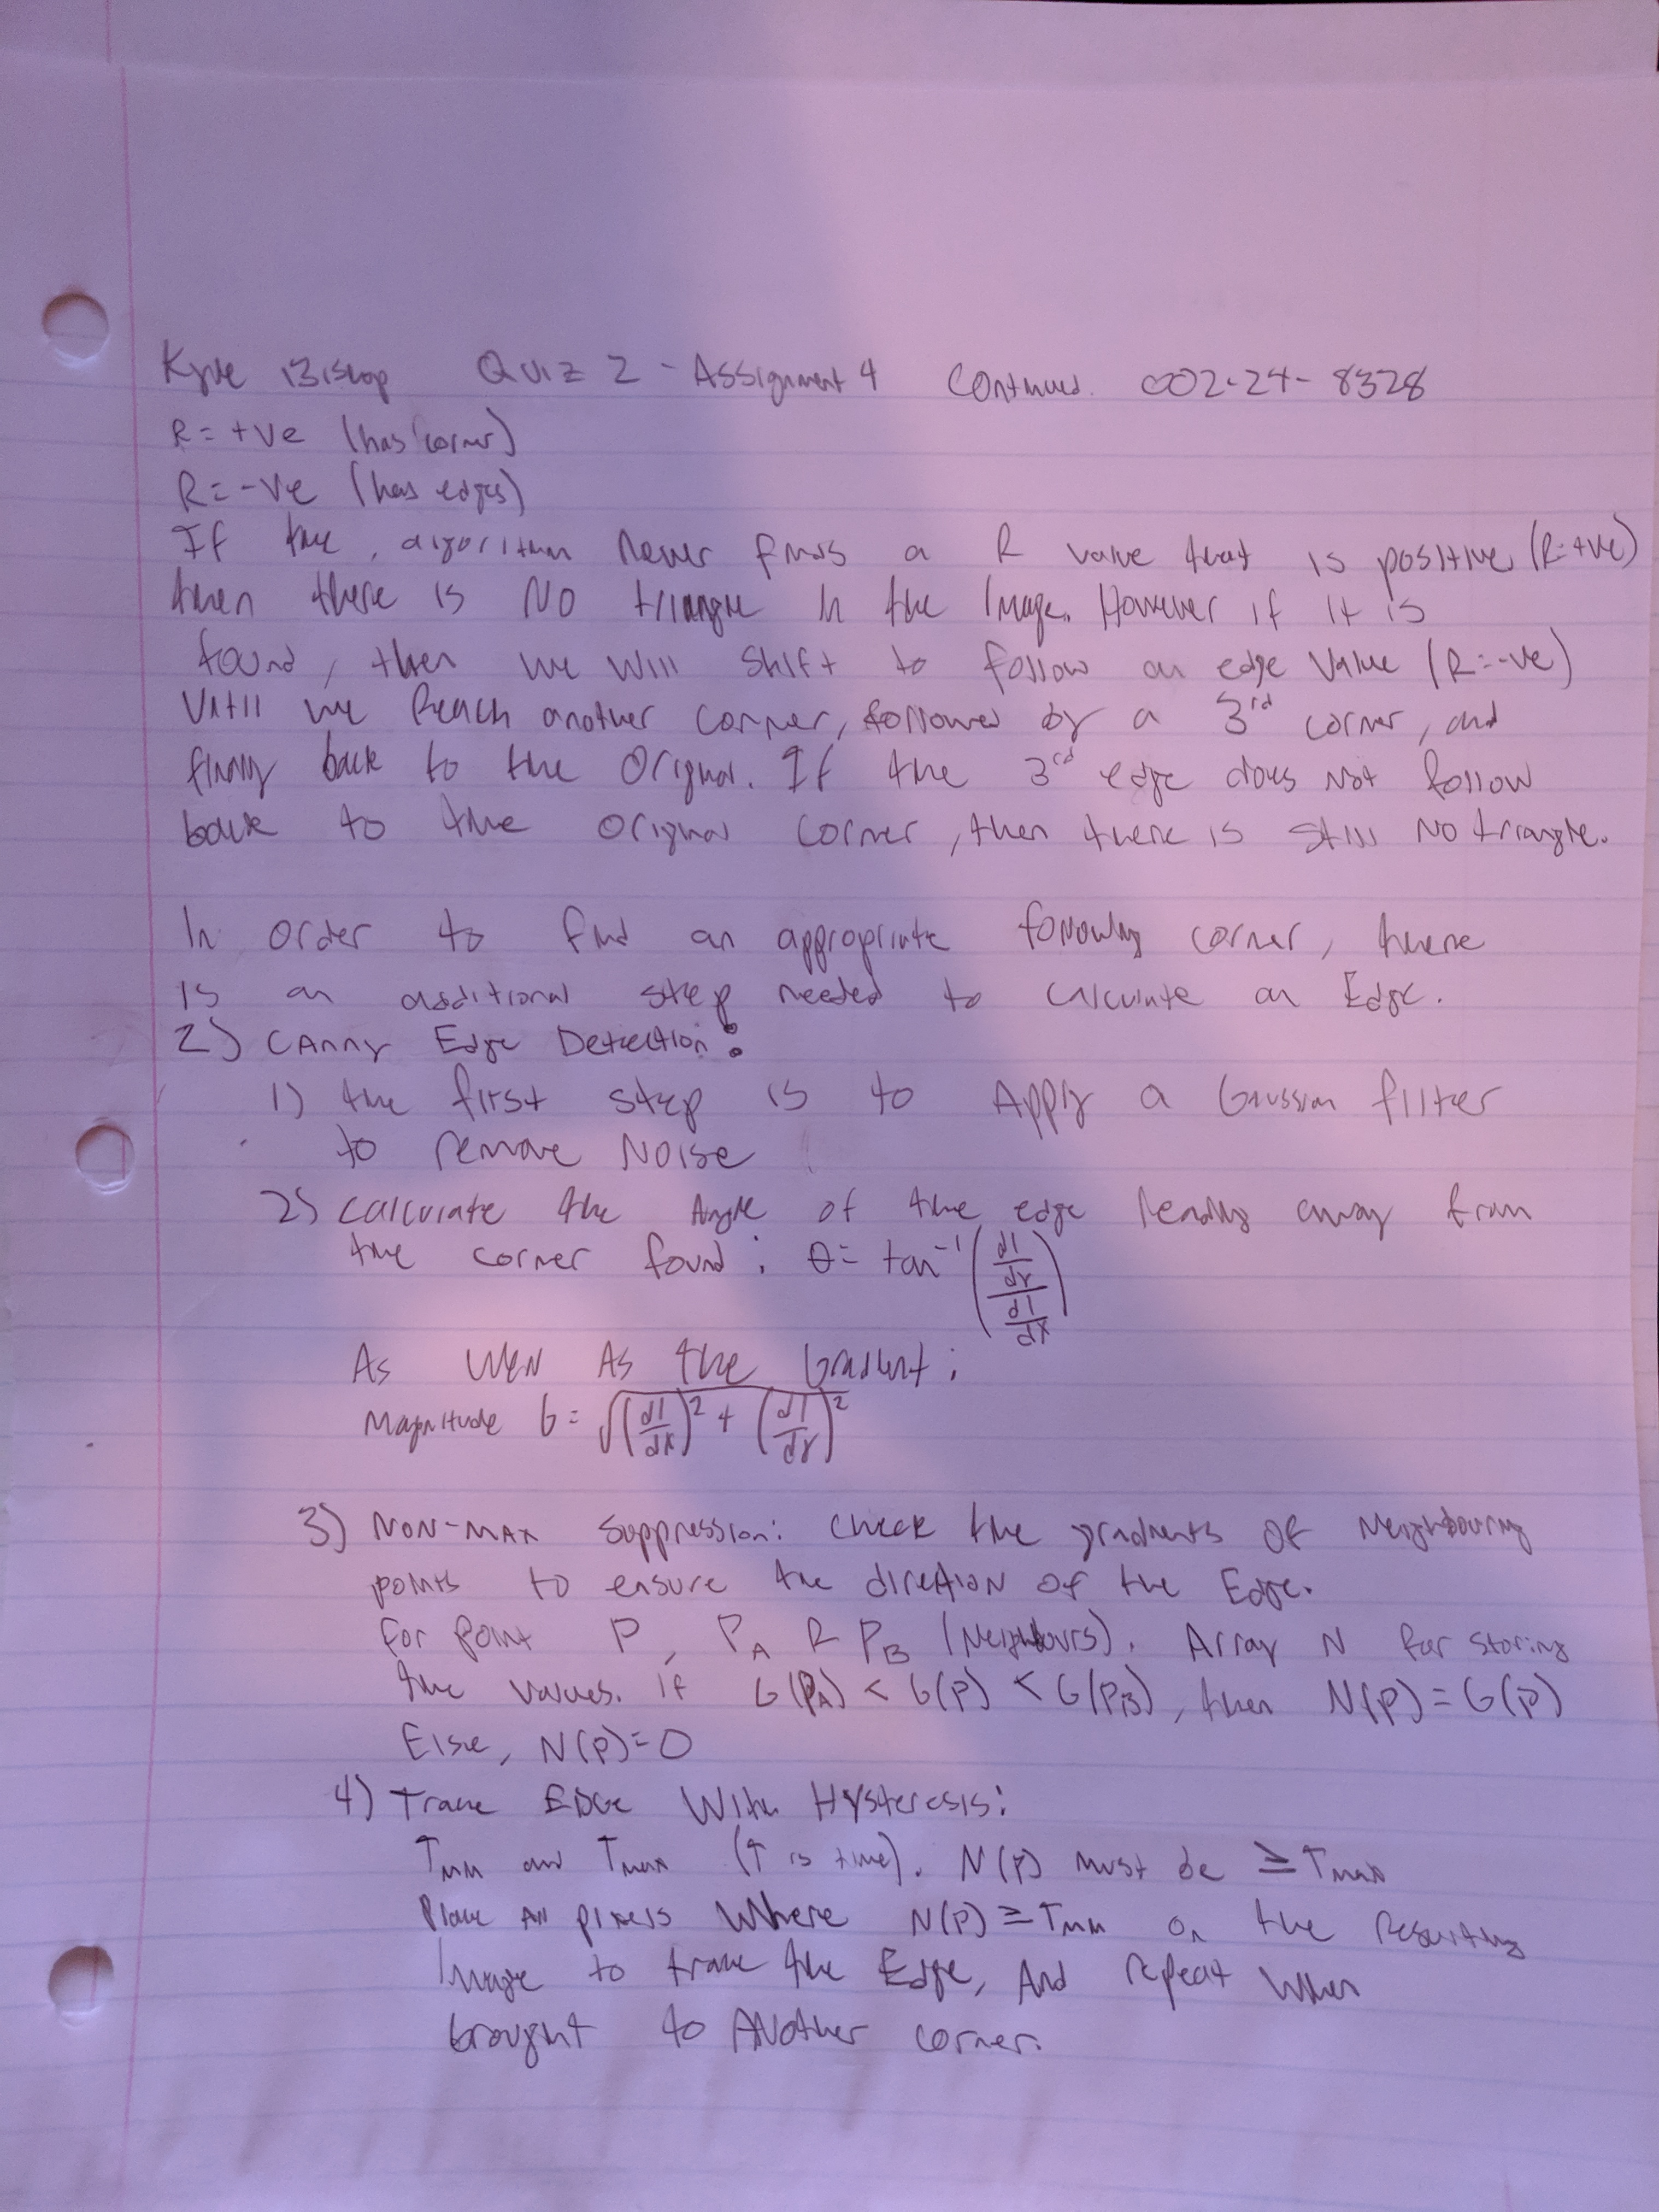 Kyle Bishop Quiz 2 - Assignment 4 Continued. 002-24-8328
R = +ve (has corner)
R = -ve (has edges)
If the, algorithm never finds a R value that is positive (R=+ve)
then there is NO triangle in the Image. However if it is
found, then we will shift to follow an edge value (R=-ve)
Until we Reach another corner, followed by a 3rd corner, and
finally back to the Original. If the 3rd edge does Not follow
back to the original corner, then there is still NO triangle.
In order to find an appropriate following corner, there
is an additional step needed to calculate an Edge.
2) Canny Edge Detection:
1) the first step is to Apply a Gaussian filter
to remove Noise
2) calculate the Angle of the edge leading away from
the corner found: θ = tan⁻¹((dI/dy)/(dI/dx))
As Well As the Gradient:
Magnitude G = √((dI/dx)² + (dI/dy)²)
3) NON-MAX Suppression: check the gradients of Neighbouring
points to ensure the direction of the Edge.
For Point P, PA & PB (Neighbours). Array N for storing
the values. if G(PA) < G(P) < G(PB), then N(P) = G(P)
Else, N(P)=0
4) Trace EDGE With Hysteresis:
Tmin and Tmax (T is time). N(P) must be ≥ Tmax
Place All pixels Where N(P) ≥ Tmin on the Resulting
Image to trace the Edge, And repeat when
brought to Another corner.